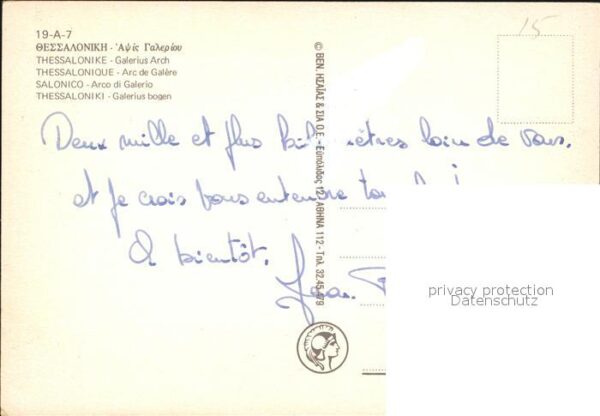 19-A-7
ΘΕΣΣΑΛΟΝΙΚΗ - Ἁψὶς Γαλερίου
THESSALONIKE - Galerius Arch
THESSALONIQUE - Arc de Galère
SALONICO - Arco di Galerio
THESSALONIKI - Galerius bogen
15
© ΒΕΝ. ΗΣΑΪΑΣ & ΣΙΑ Ο.Ε. - Εὐπόλιδος 12, ΑΘΗΝΑ 112 - Τηλ. 32.45.479
Deux mille et plus kilomètres loin de vous,
et je crois vous entendre
A bientôt.
Jean
privacy protection
Datenschutz